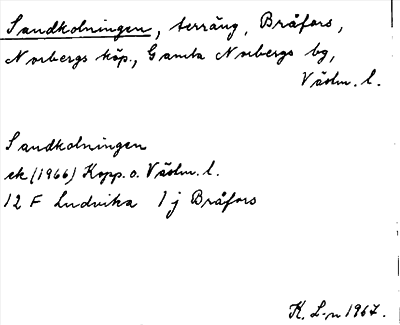 Sandkolningen, terräng, Bråfors,
Norbergs köp., Gamla Norbergs bg,
Västm. l.
Sandkolningen
ek (1966) Kopp. o. Västm. l.
12 F Ludvika 1 j Bråfors
K. L-n 1967.